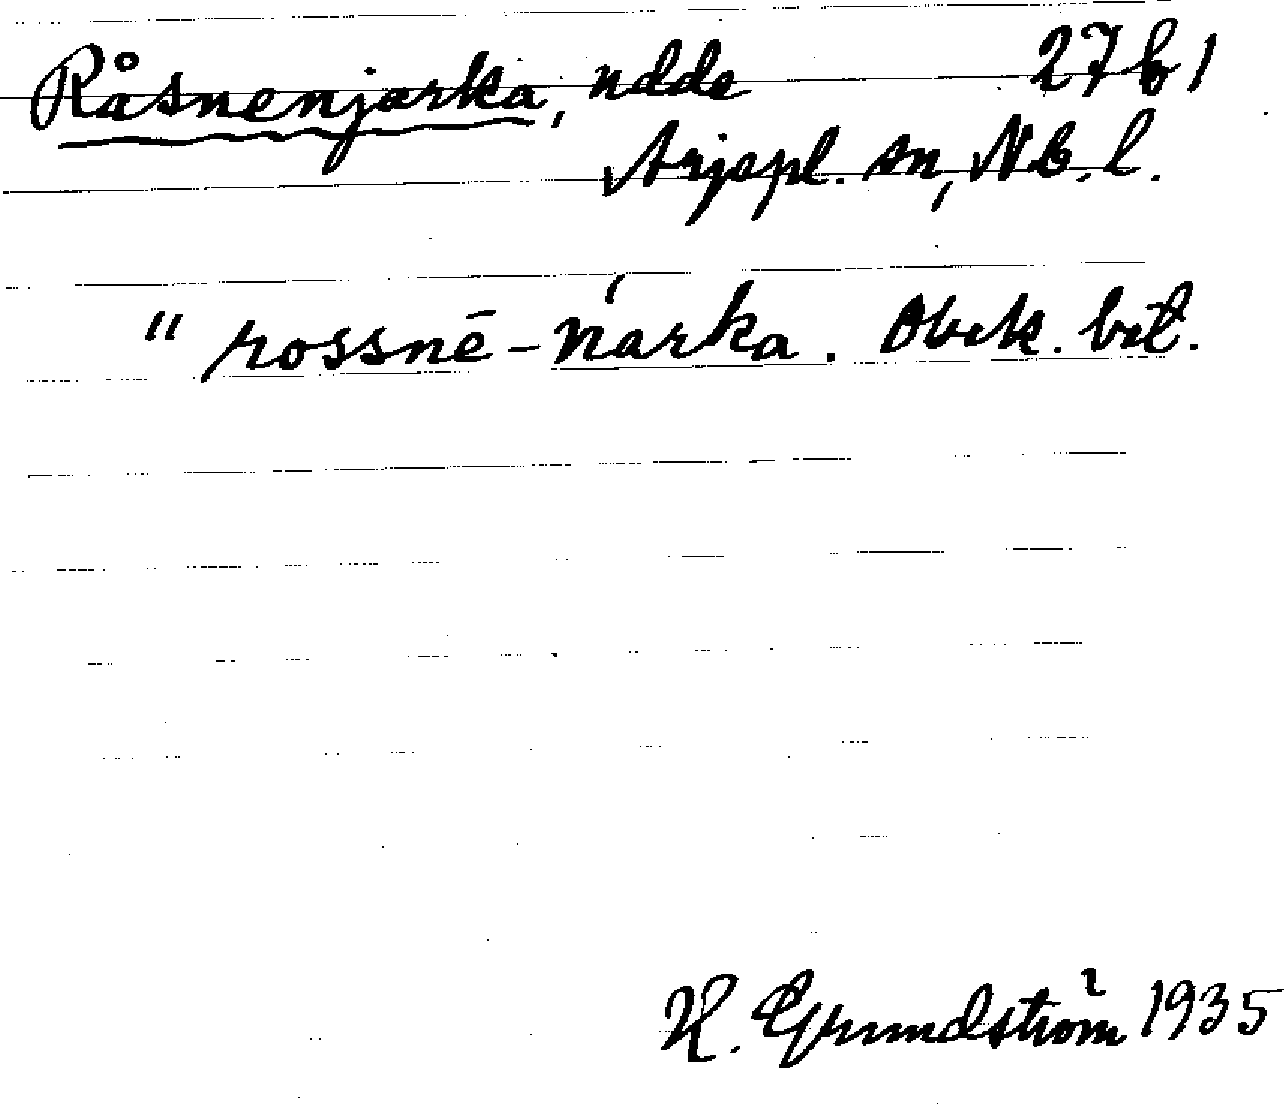 Råsnenjarka, udde 27 b 1
Arjepl. sn, Nb. l.
" rossnē-ńarka. Obek. bet.
H. Grundström 1935